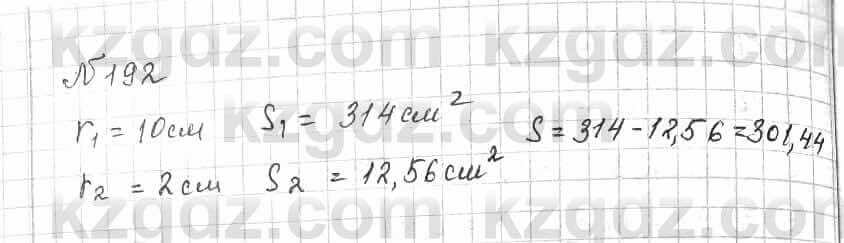 kzgdz.com kzgdz.com
№192
r₁ = 10см S₁ = 314см² S = 314 - 12,56 = 301,44
kzgdz.com kzgdz.com
r₂ = 2см S₂ = 12,56см²
kzgdz.com kzgdz.com